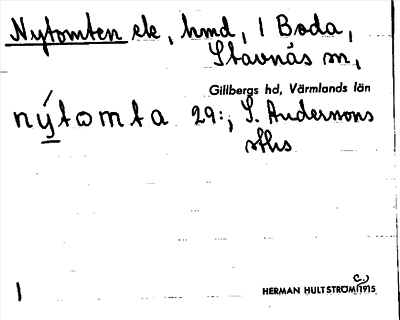 Nytomten ele, hmd, 1 Boda,
Stavnäs sn,
Gillbergs hd, Värmlands län
nýtomta 29:, S. Andersons
sths
c.)
HERMAN HULTSTRÖM 1915
1